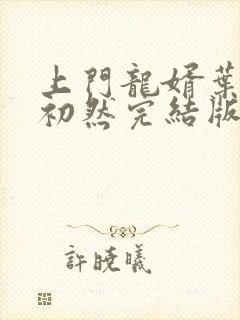 上門龍婿葉
初然完結版
許曉曦